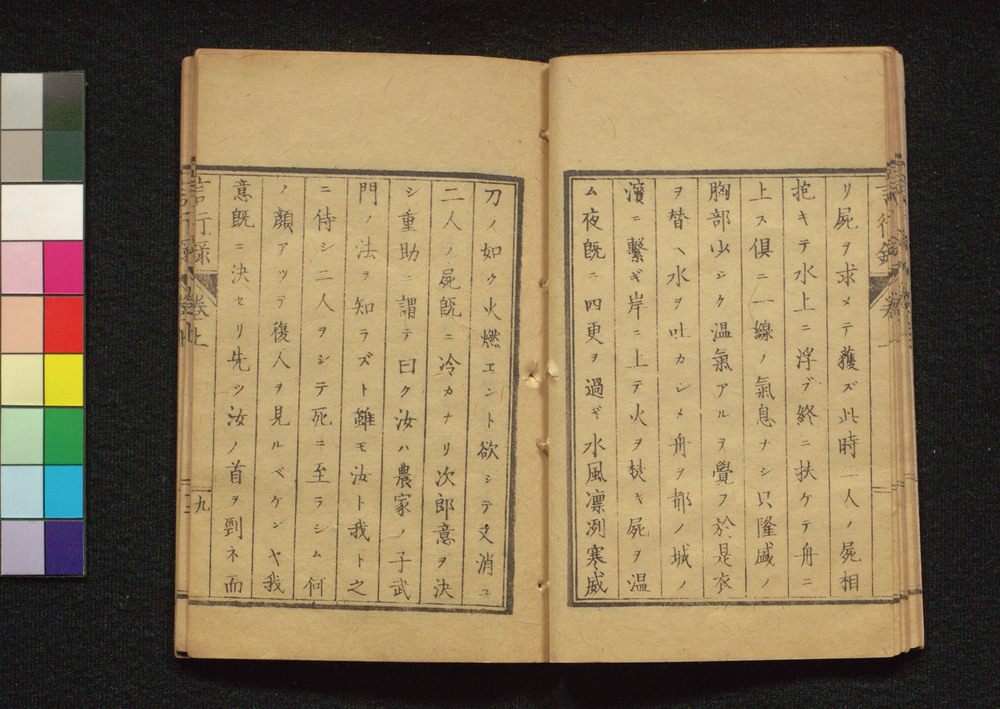 リ屍ヲ求メテ獲ズ此時二人ノ屍相
抱キテ水上ニ浮ブ終ニ扶ケテ舟ニ
上ス倶ニ一線ノ氣息ナシ只隆盛ノ
胸部少シク温氣アルヲ覺フ於是衣
ヲ替ヘ水ヲ吐カシメ舟ヲ都ノ城ノ
濱ニ繋ギ岸ニ上テ火ヲ焚キ屍ヲ温
ム夜既ニ四更ヲ過ギ水風凛冽寒威
刀ノ如ク火燃エント欲シテ又消ユ
二人ノ屍既ニ冷カナリ次郎意ヲ決
シ重助ニ謂テ曰ク汝ハ農家ノ子武
門ノ法ヲ知ラズト雖モ汝ト我ト之
ニ侍シ二人ヲシテ死ニ至ラシム何
ノ顔アッテ復人ヲ見ルベケンヤ我
意既ニ決セリ先ツ汝ノ首ヲ刎ネ而
言行録 卷上
九